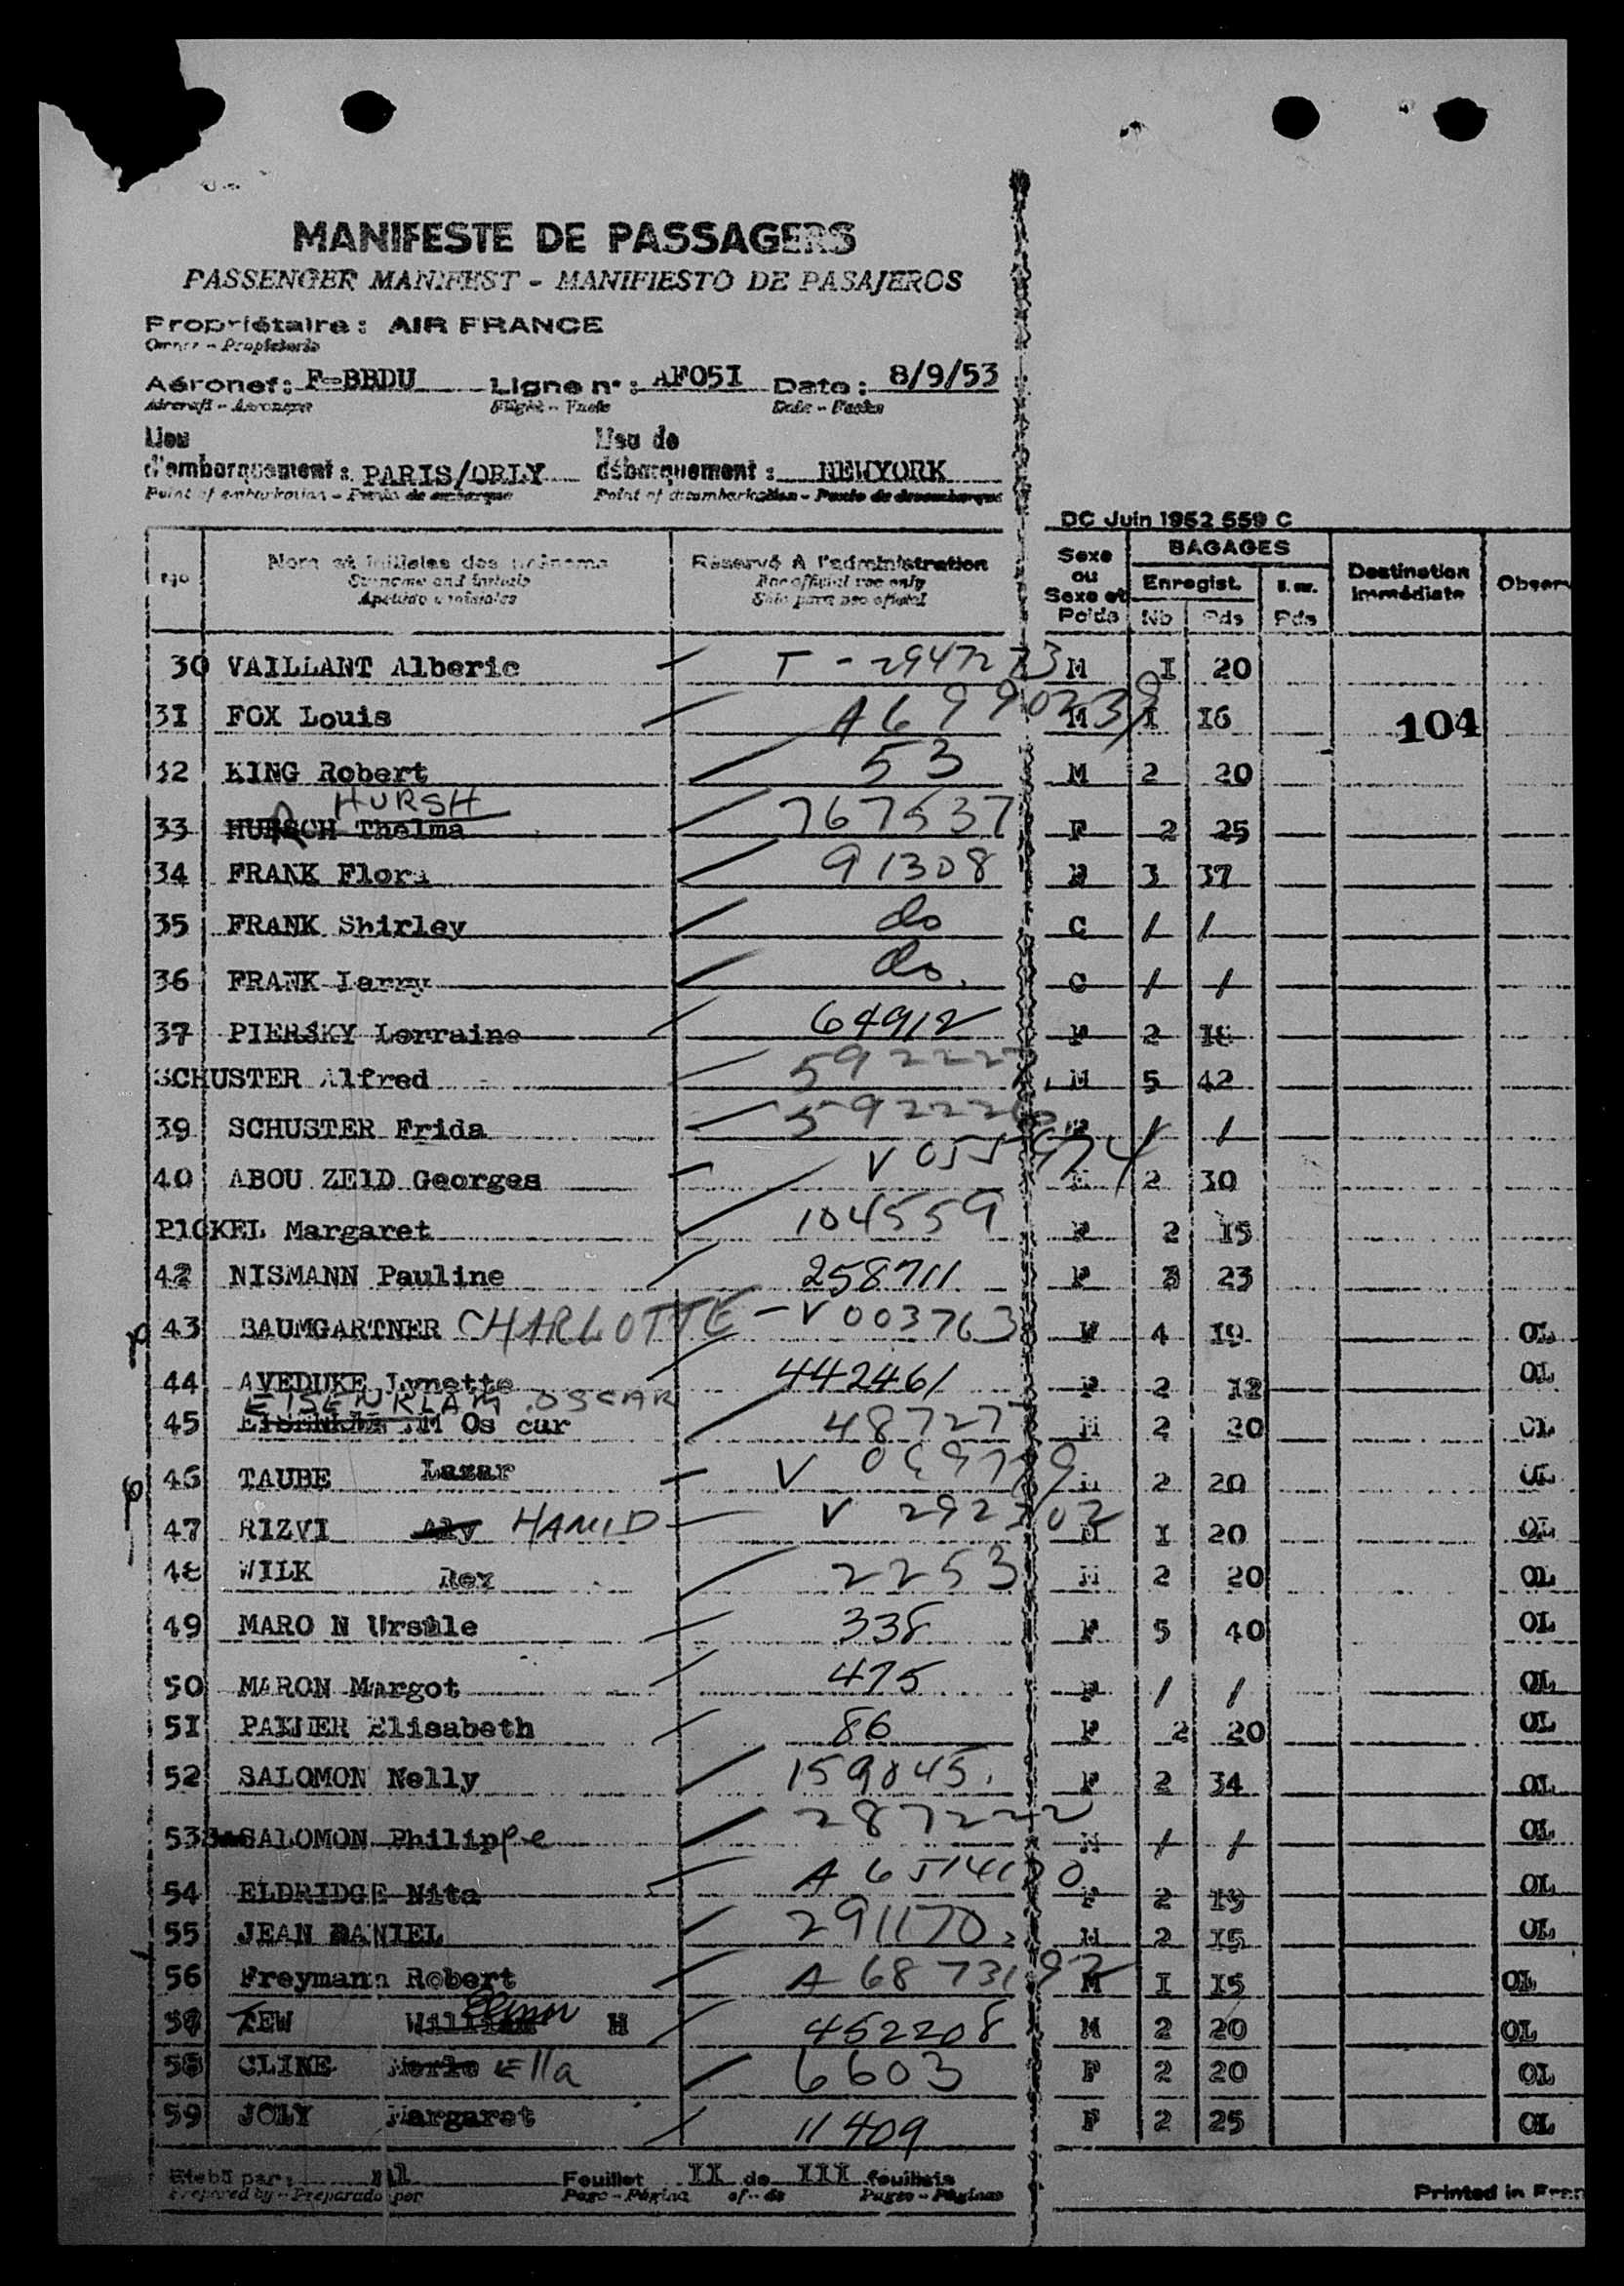 MANIFESTE DE PASSAGERS
PASSENGER MANIFEST - MANIFIESTO DE PASAJEROS
Propriétaire : AIR FRANCE
Owner - Propietario
Aéronef : F-BBDU Ligne n° : AF05I Date : 8/9/53
Aircraft - Aeronave Flight - Date - Fecha
Lieu d'embarquement : PARIS/ORLY Lieu de débarquement : NEWYORK
Point of embarkation - Punto de embarque Point of disembarkation - Punto de desembarque
DC Juin 1952 559 C
No Nom et initiales des prénoms Réservé à l'administration Sexe ou Sexe et Poids BAGAGES Destination immédiate Observ
Surname and initials For official use only Enregist.
Apellido e iniciales Solo para uso oficial Nb Pds Pds
30 VAILLANT Alberic T - 2947273 M I 20
31 FOX Louis A6990239 M I I6 104
32 KING Robert 53 M 2 20
HURSH
33 Thelma 767537 F 2 25
34 FRANK Flora 91308 F 3 37
35 FRANK Shirley do C / /
36 FRANK Larry do. C / /
37 PIERSKY Lorraine 64912 F 2
SCHUSTER Alfred M 5 42
39 SCHUSTER Frida / /
40 ABOU ZEID Georges 2 30
PICKEL Margaret 104559 F 2 I5
42 NISMANN Pauline 258711 F 3 23
43 BAUMGARTNER CHARLOTTE - V003763 F 4 OL
44 AVEDUKE Lynette 442461 F 2 OL
EISENKLAM OSCAR
45 Os car 48727 M 2 20 OL
46 TAUBE Lazar 2 20 OL
47 RIZVI Aly HAMID M I 20 OL
48 WILK Rex 2253 M 2 20 OL
49 MARO N Ursule 338 F 5 40 OL
50 MARON Margot 475 F / / OL
5I Elisabeth 86 F 2 20 OL
52 SALOMON Nelly 159845. F 2 34 OL
53 SALOMON Philippe 287222 M / / OL
54 ELDRIDGE Nita F 2 I9 OL
55 JEAN DANIEL 291170 M 2 I5 OL
56 Freymann Robert M I I5 OL
57 William H 452208 M 2 20 OL
58 CLINE Ella 6603 F 2 20 OL
59 JOLY Margaret 11409 F 2 25 OL
Etabli par : Feuillet II de III feuillets
Prepared by - Preparado por Page - Página of - de Pages - Páginas
Printed in Fran